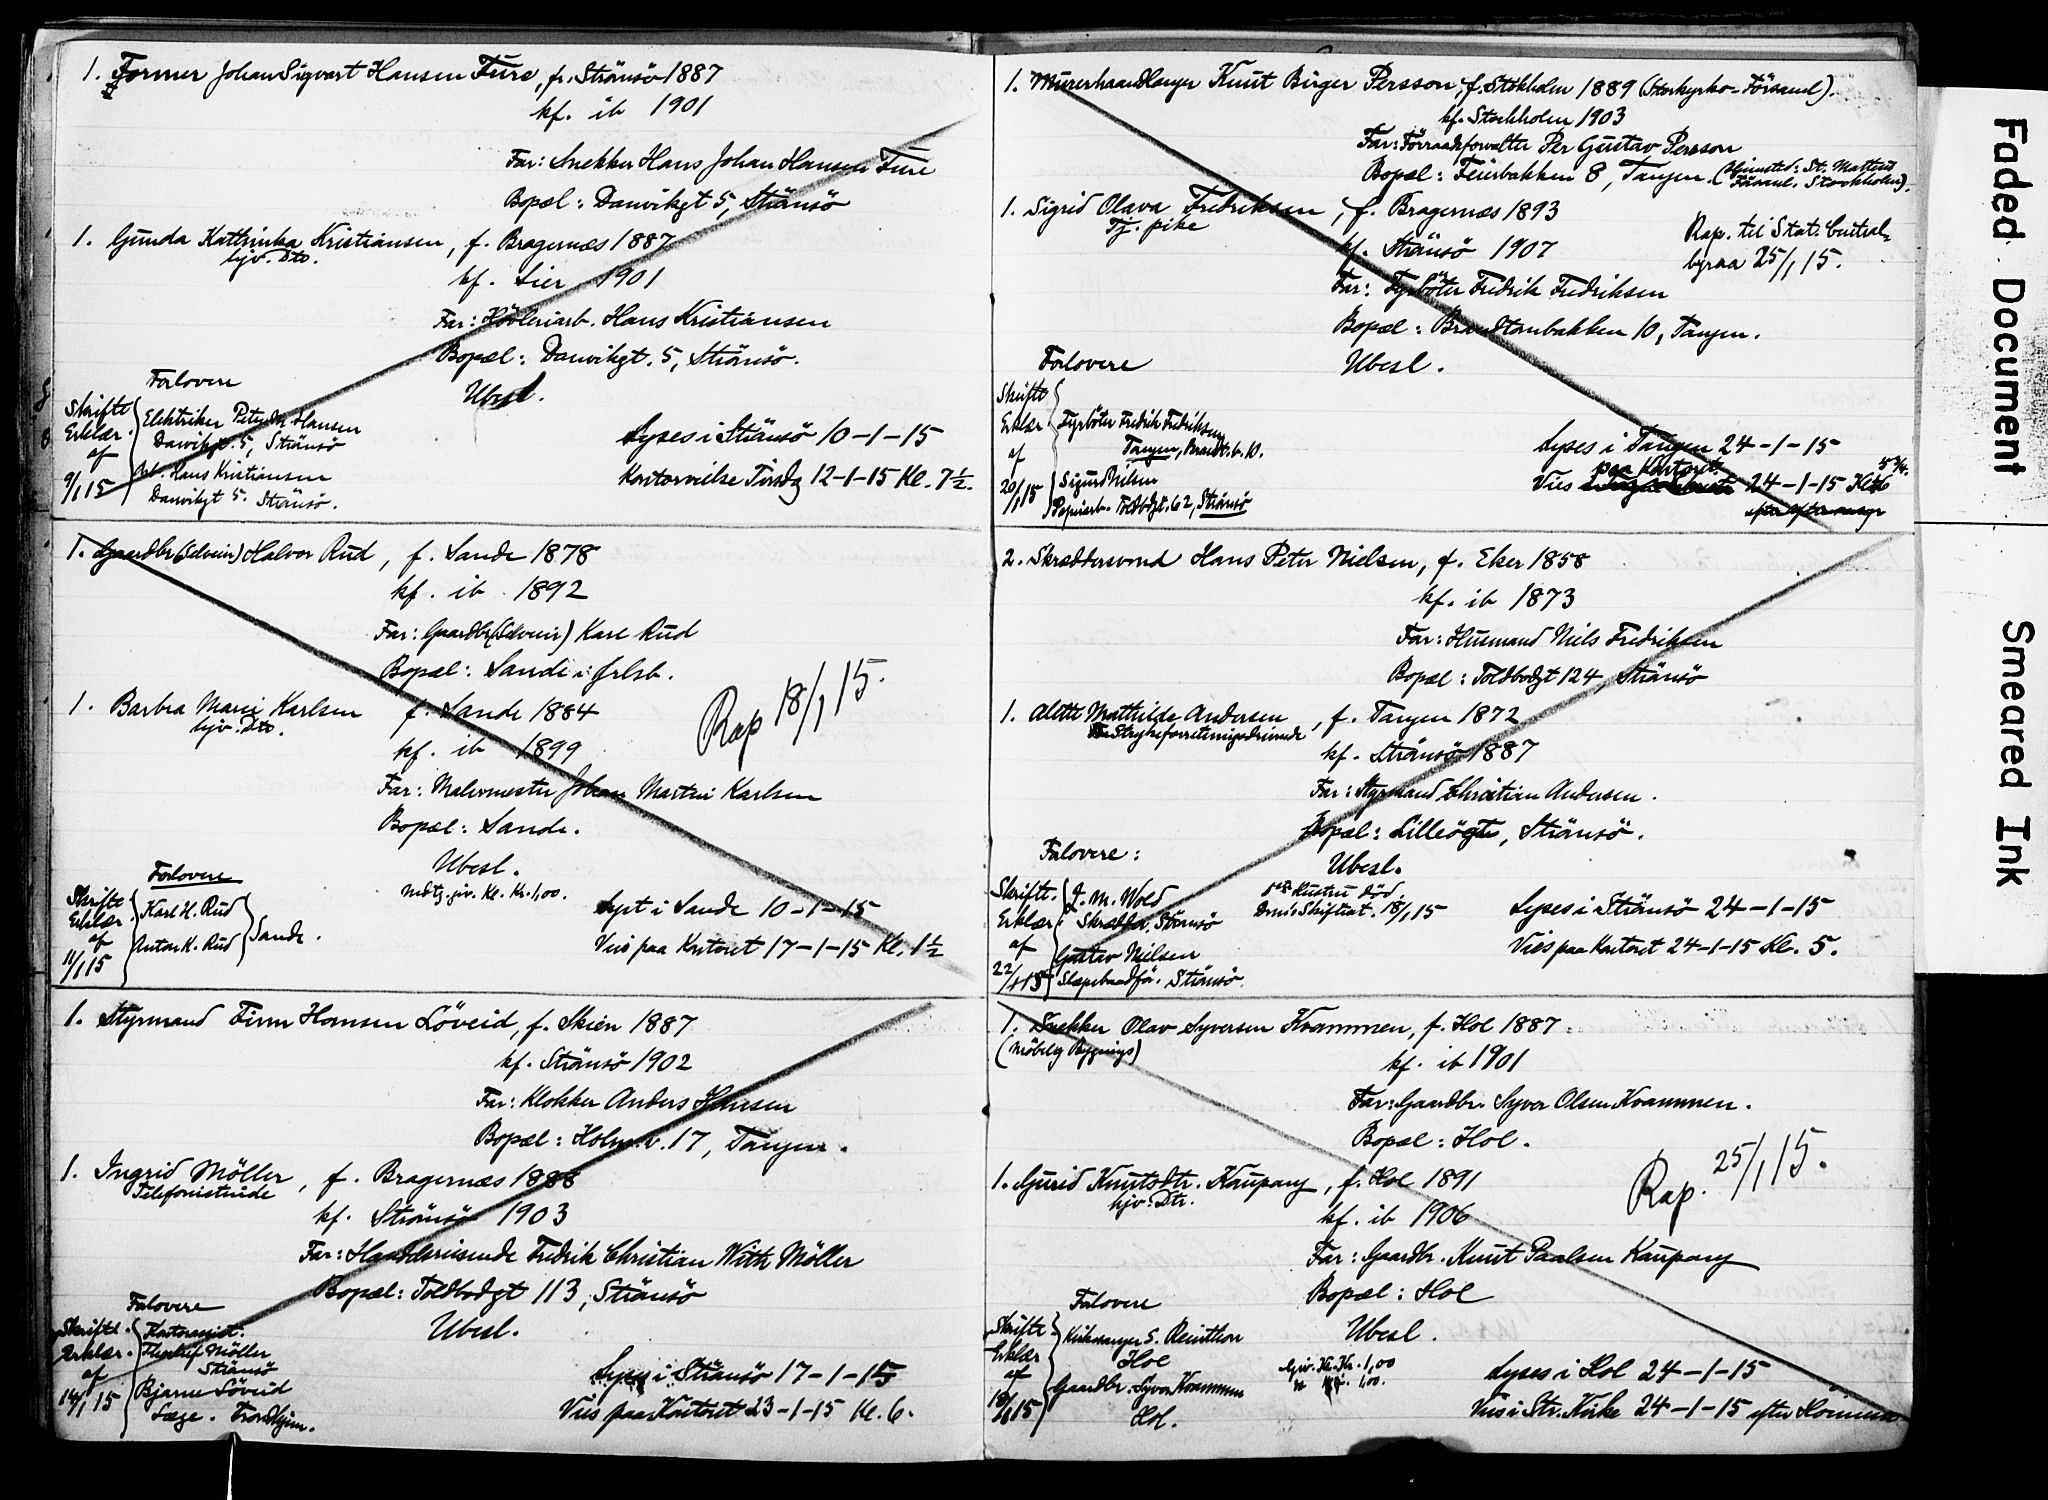 1. Former Johan Sigvart Hansen Ture, f. Strömsö 1887
kf. ib 1901
Far: Snekker Hans Johan Hansen Ture
Bopæl: Danvikgt 5, Strömsö
1. Gunda Kathinka Kristiansen, f. Bragernæs 1887
hjv. Dtr.
kf. Lier 1901
Far: Høvleriarb. Hans Kristiansen
Bopæl: Danvikgt. 5, Strömsö.
Ubesl.
Forlovere
Skriftl. Erklær. af 9/1 15
Elektriker Peter M. Hansen
Danvikgt. 5, Strömsö
Arb. Hans Kristiansen
Danvikgt 5. Strömsö.
Lyses i Strömsö 10-1-15
Kontorvielse Tirsdg 12-1-15 Kl. 7½.
1. Gaardbr (Selveier) Halvor Rud, f. Sande 1878
kf. ib 1892
Far: Gaardbr (Selveier) Karl Rud
Bopæl: Sande i Jrlsb.
1. Barbra Marie Karlsen f. Sande 1884
hjv. Dtr.
kf. ib 1899
Far: Malermester Johan Martin Karlsen
Bopæl: Sande.
Rap 18/1 15.
Ubesl.
Mdtg. giv. Kl. Kr. 1,00.
Forlovere
Skriftl. Erklær. af 11/1 15
Karl H. Rud
Anton K. Rud
Sande.
Lyst i Sande 10-1-15
Vies paa Kontoret 17-1-15 Kl. 1½
1. Styrmand Finn Hansen Löveid, f. Skien 1887
kf. Strömsö 1902
Far: Klokker Anders Hansen
Bopæl: Holm.v. 17, Tangen.
1. Ingrid Möller, f. Bragernæs 1888
Telefonistinde
kf. Strömsö 1903
Far: Handelsreisende Fredrik Christian With Möller
Bopæl: Toldbodgt 113, Strömsö
Ubesl.
Forlovere
Skriftl. Erklær. af 14/1 15
Kontorassist.
Möller
Strömsö
Bjarne Löveid
Læge. Trondhjem.
Lyses i Strömsö 17-1-15
Vies paa Kontoret 23-1-15 Kl. 6.
1. Murerhaandlanger Knut Birger Persson, f. Stokholm 1889 (Storkyrko-Församl).
kf. Stockholm 1903
Far: Förraadsforvalter Per Gustav Persson
Bopæl: Feierbakken 8, Tangen. (Hjemsted: St. Matteus
Församl. Stockholm).
1. Sigrid Olava Fredriksen, f. Bragernæs 1893
Tj. pike
kf. Strömsö 1907
Far: Fyrböter Fredrik Fredriksen
Bopæl: Brandtenbakken 10, Tangen.
Rap. til Stat. Central-
byraa 25/1 15.
Ubesl.
Forlovere
Skriftl. Erklær af 20/1 15
Fyrböter Fredrik Fredriksen
Tangen, Brandt.b. 10.
Sigurd Nilsen
Papirarb. Toldbodgt. 62, Strömsö
Lyses i Tangen 24-1-15
paa Kontoret 5 3/4.
Vies 24-1-15 Kl 6
2. Skræddersvend Hans Peter Nielsen, f. Eker 1858
kf. ib 1873
Far: Husmand Niels Fredriksen
Bopæl: Toldbodgt 124, Strömsö
1. Alette Mathilde Andersen, f. Tangen 1872
Strykeforretningsdrivende
kf. Strömsö 1887
Far: Styrmand Christian Andersen.
Bopæl: Lilleögt, Strömsö.
Forlovere:
Ubesl.
1ste Hustru död
Bevis Skifteat. 18/1 15
Skriftl. Erklær af 22/1 15
J. M. Wold
Skrædder, Strömsö
Gustav Nielsen
Slæpebaadför. Strömsö.
Lyses i Strömsö 24-1-15
Vies paa Kontoret 24-1-15 Kl. 5.
1. Snekker Olav Syversen Kvammen, f. Hol 1887
(Möbel og Bygnings)
kf. ib 1901
Far: Gaardbr. Syver Olsen Kvammen.
Bopæl: Hol.
1. Gurid Knutsdtr. Kaupang, f. Hol 1891
hjv. Dtr.
kf. ib 1906
Far: Gaardbr. Knut Paalsen Kaupang
Bopæl: Hol
Rap. 25/1 15.
Forlovere
Ubesl.
Skriftl. Erklær af 18/1 15
Kirkesanger S. Reinton
Hol
Gaardbr. Syver Kvammen
Hol.
Giv. Kl. Kr. 1,00
1,00.
Lyses i Hol 24-1-15
Vies i Str. Kirke 24-1-15 efter Höimesse
Faded Document
Smeared Ink